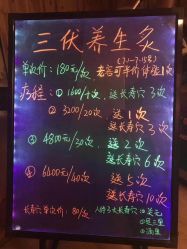 三伏养生灸
(7.1-7.15号)
单次价:180元/次 老客可半价体验1次
疗程:① 1600/十次 送长寿穴3次
② 3200/20次 送1次
送长寿穴3次
③ 4800元/30次 送2次
送长寿穴6次
④ 6400元/40次 送5次
送长寿穴10次
长寿穴单次价:80/次 人体3大长寿穴 ①关元
②足三里
③涌泉